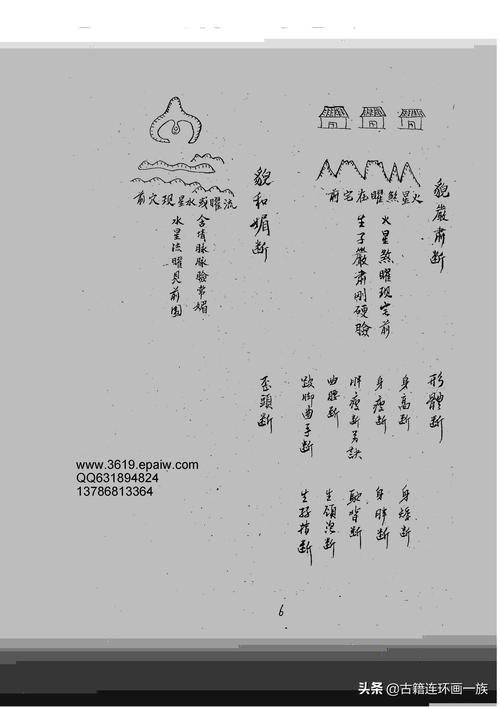 貌嚴肅斷
火星煞曜在宅前
火星煞曜現宅前
生子嚴肅剛硬臉
貌和媚斷
流曜或水星現穴前
含情脉脉臉常媚
水星流曜見前囯
形體斷
身高斷
身矮斷
身瘦斷
身胖斷
胖瘦斷另訣
駝背斷
曲腰斷
生頷泡斷
跛脚曲手斷
生孖指斷
歪頭斷
www.3619.epaiw.com
QQ631894824
13786813364
6
头条 @古籍连环画一族